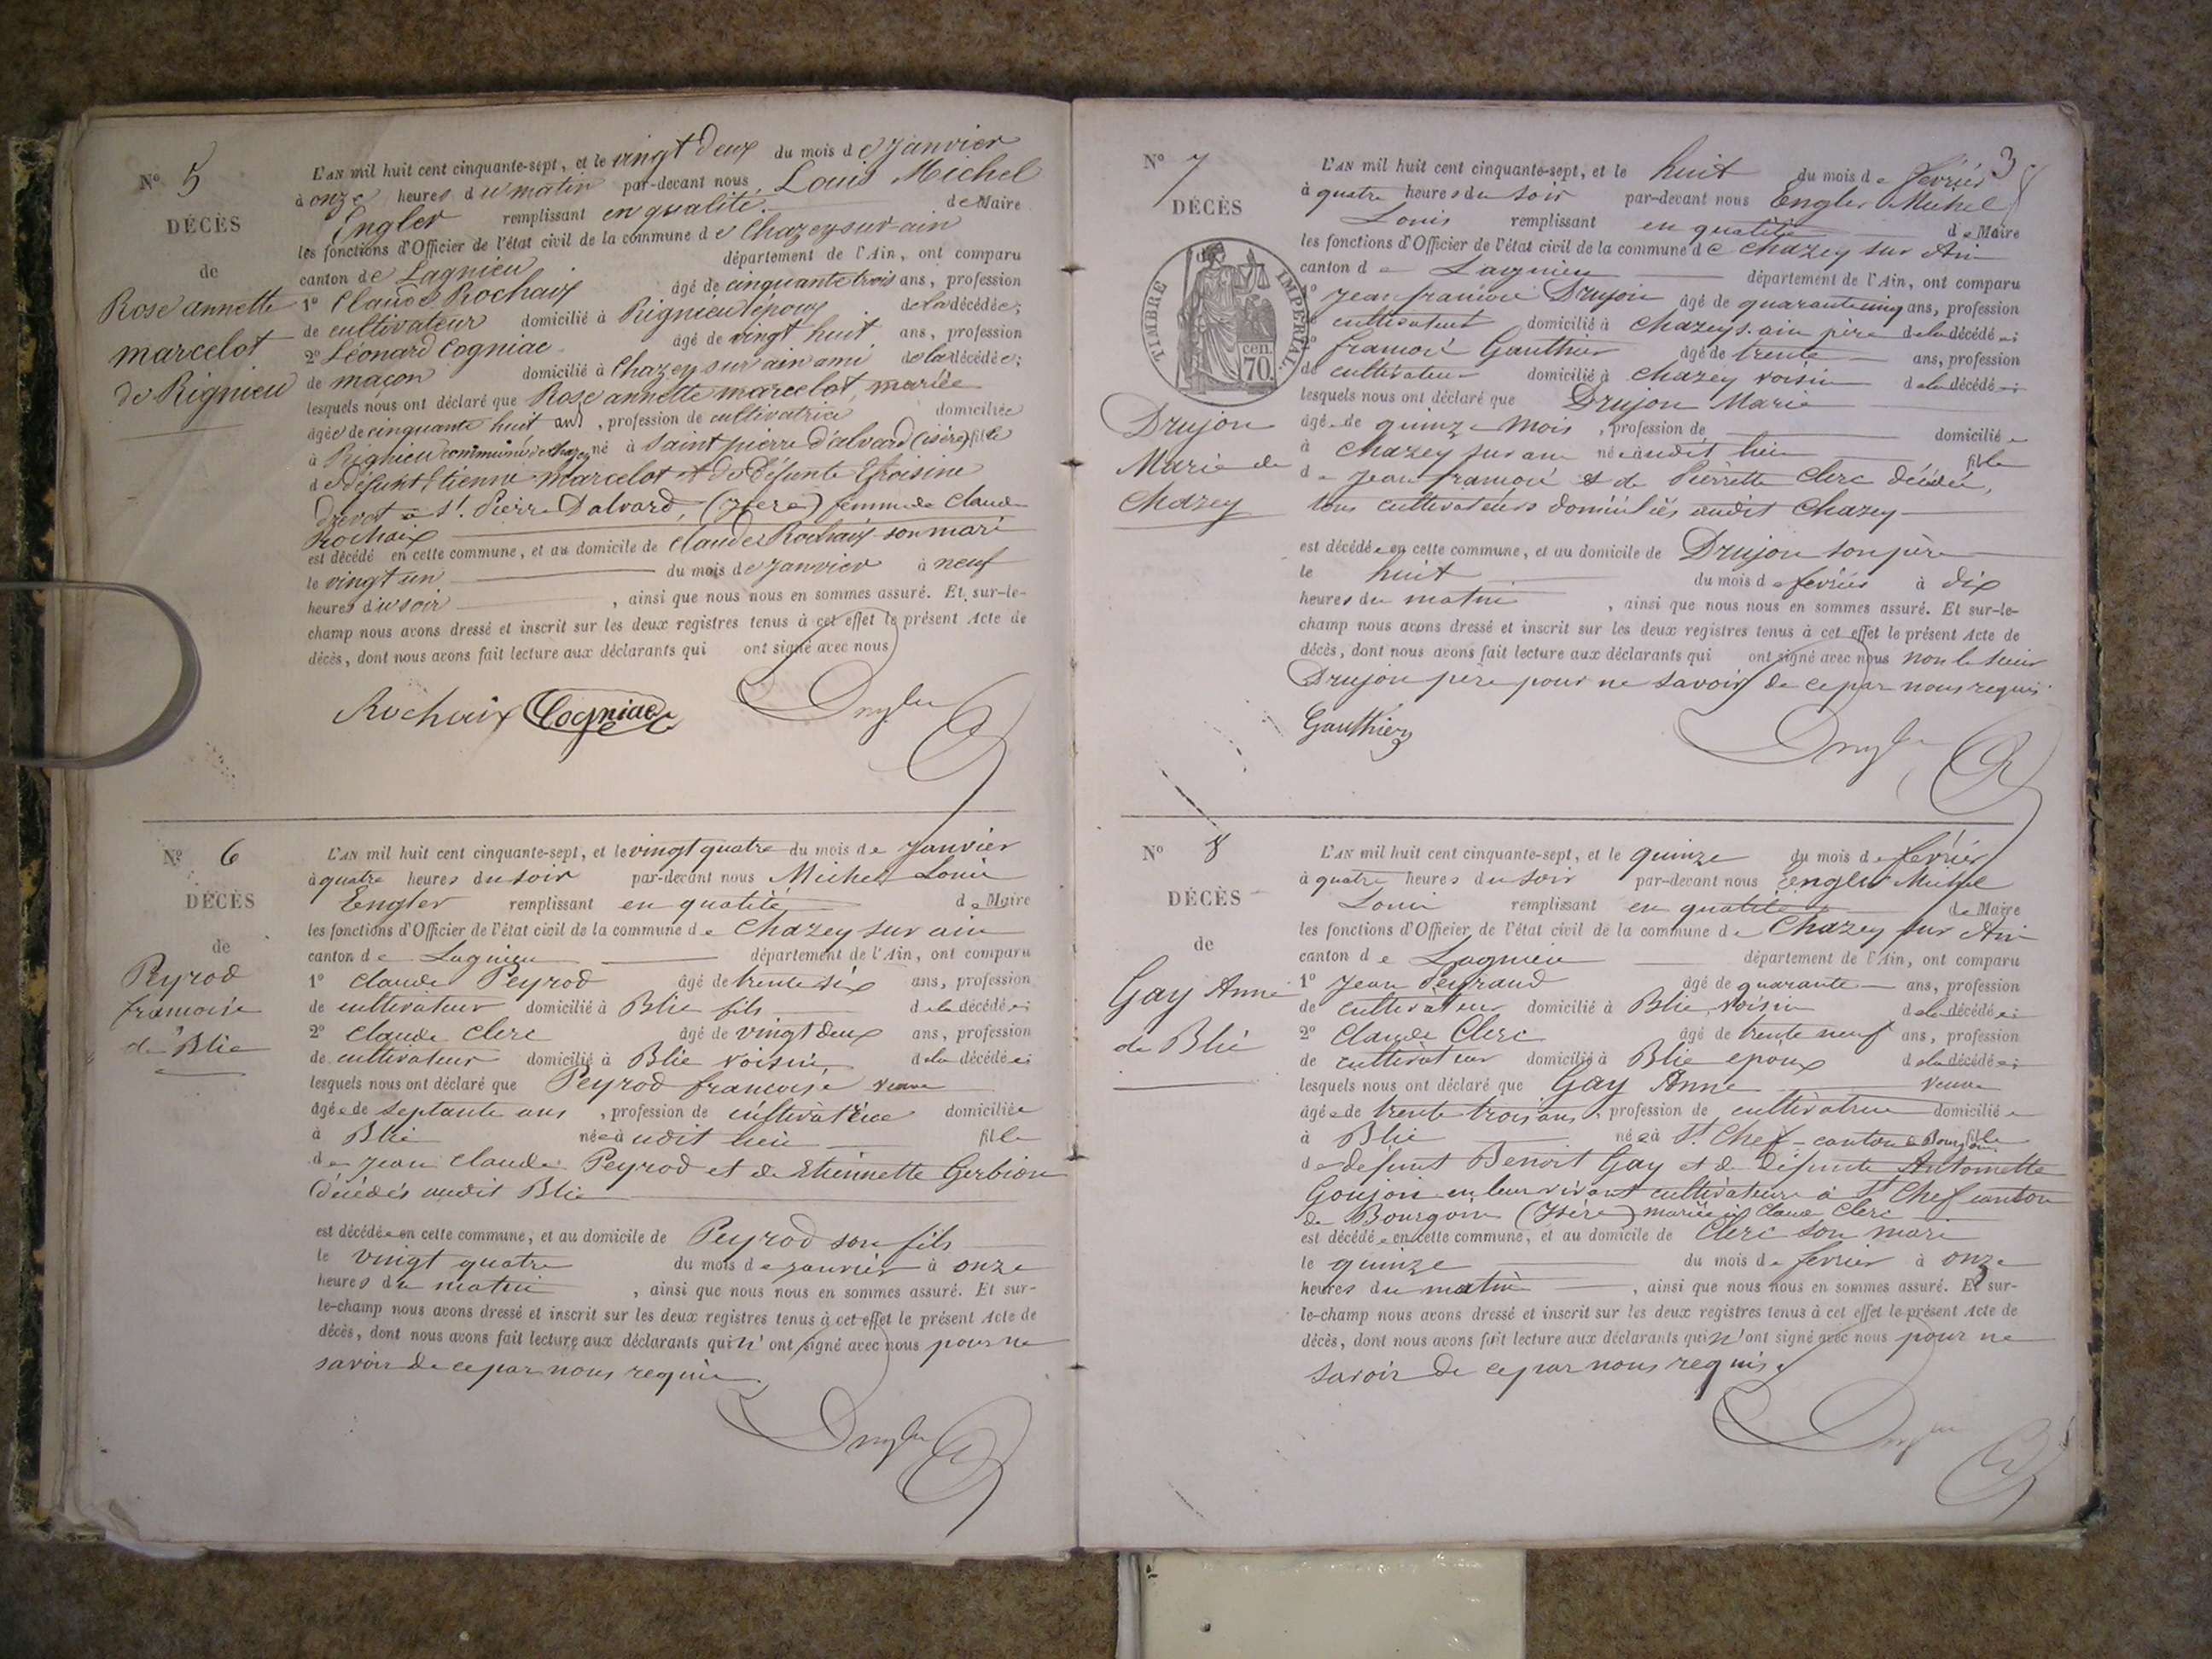 N° 5
DÉCÈS
de
Rose annette
marcelot
de Rignieu
L'AN mil huit cent cinquante-sept, et le vingt deux du mois de janvier
à onze heures du matin par-devant nous, Louis Michel
Engler remplissant en qualité de Maire
les fonctions d'Officier de l'état civil de la commune de Chazey-sur-ain
canton de Lagnieu département de l'Ain, ont comparu
1° Claude Rochaix âgé de cinquante trois ans, profession
de cultivateur domicilié à Rignieu l'époux de la décédée;
2° Léonard Cogniac âgé de vingt huit ans, profession
de maçon domicilié à Chazey sur ain ami de la décédée;
lesquels nous ont déclaré que Rose annette marcelot, mariée
âgée de cinquante huit ans, profession de cultivatrice domiciliée
à Rignieu commune de chazey né à Saint pierre d'alvard (isère) fille
de défunt Etienne marcelot et de défunte Efroisine
à St. Pierre Dalvard, (Isère) femme de Claude
Rochaix
est décédé en cette commune, et au domicile de Claude Rochaix son mari
le vingt un du mois de janvier à neuf
heures du soir, ainsi que nous nous en sommes assuré. Et sur-le-
champ nous avons dressé et inscrit sur les deux registres tenus à cet effet le présent Acte de
décès, dont nous avons fait lecture aux déclarants qui ont signé avec nous
Rochaix Cogniac Engler
N° 6
DÉCÈS
de
Peyrod
francoise
de Blie
L'AN mil huit cent cinquante-sept, et le vingt quatre du mois de janvier
à quatre heures du soir par-devant nous Michel Louis
Engler remplissant en qualité de Maire
les fonctions d'Officier de l'état civil de la commune de Chazey sur ain
canton de Lagnieu département de l'Ain, ont comparu
1° Claude Peyrod âgé de trente six ans, profession
de cultivateur domicilié à Blie fils de la décédée;
2° Claude Clerc âgé de vingt deux ans, profession
de cultivateur domicilié à Blie voisin de la décédée;
lesquels nous ont déclaré que Peyrod francoise veuve
âgée de septante ans, profession de cultivatrice domiciliée
à Blie née audit lieu fille
de Jean Claude Peyrod et de Etiennette Gerbion
décédés audit Blie
est décédée en cette commune, et au domicile de Peyrod son fils
le vingt quatre du mois de janvier à onze
heures du matin, ainsi que nous nous en sommes assuré. Et sur-
le-champ nous avons dressé et inscrit sur les deux registres tenus à cet effet le présent Acte de
décès, dont nous avons fait lecture aux déclarants qui n'ont signé avec nous pour ne
savoir de ce par nous requis
Engler
3
N° 7
DÉCÈS
TIMBRE IMPERIAL
70 cen.
Drujon
Marie de
Chazey
L'AN mil huit cent cinquante-sept, et le huit du mois de février
à quatre heures du soir par-devant nous Engler Michel
Louis remplissant en qualité de Maire
les fonctions d'Officier de l'état civil de la commune de Chazey sur Ain
canton de Lagnieu département de l'Ain, ont comparu
1° Jean francois Drujon âgé de quarante cinq ans, profession
de cultivateur domicilié à Chazey s. ain père de la décédée;
2° francois Gauthier âgé de trente ans, profession
de cultivateur domicilié à Chazey voisin de la décédée;
lesquels nous ont déclaré que Drujon Marie
âgée de quinze mois, profession de domiciliée
à Chazey sur ain née audit lieu fille
de Jean francois et de Pierrette Clerc décédée,
tous cultivateurs domiciliés audit Chazey
est décédée en cette commune, et au domicile de Drujon son père
le huit du mois de février à dix
heures du matin, ainsi que nous nous en sommes assuré. Et sur-le-
champ nous avons dressé et inscrit sur les deux registres tenus à cet effet le présent Acte de
décès, dont nous avons fait lecture aux déclarants qui ont signé avec nous non le sieur
Drujon père pour ne savoir de ce par nous requis
Gauthier Engler
N° 8
DÉCÈS
de
Gay Anne
de Blie
L'AN mil huit cent cinquante-sept, et le quinze du mois de février
à quatre heures du soir par-devant nous Engler Michel
Louis remplissant en qualité de Maire
les fonctions d'Officier de l'état civil de la commune de Chazey sur Ain
canton de Lagnieu département de l'Ain, ont comparu
1° Jean Peyraud âgé de quarante ans, profession
de cultivateur domicilié à Blie voisin de la décédée;
2° Claude Clerc âgé de trente neuf ans, profession
de cultivateur domicilié à Blie epoux de la décédée;
lesquels nous ont déclaré que Gay Anne veuve
âgée de trente trois ans, profession de cultivatrice domiciliée
à Blie née à St Chef canton de Bourgoin fille
de defunt Benoit Gay et de défunte Antoinette
Goujon en leur vivant cultivateurs à St Chef canton
de Bourgoin (Isère) mariée à Claude Clerc
est décédée en cette commune, et au domicile de Clerc son mari
le quinze du mois de fevrier à onze
heures du matin, ainsi que nous nous en sommes assuré. Et sur-
le-champ nous avons dressé et inscrit sur les deux registres tenus à cet effet le présent Acte de
décès, dont nous avons fait lecture aux déclarants qui n'ont signé avec nous pour ne
savoir de ce par nous requis.
Engler